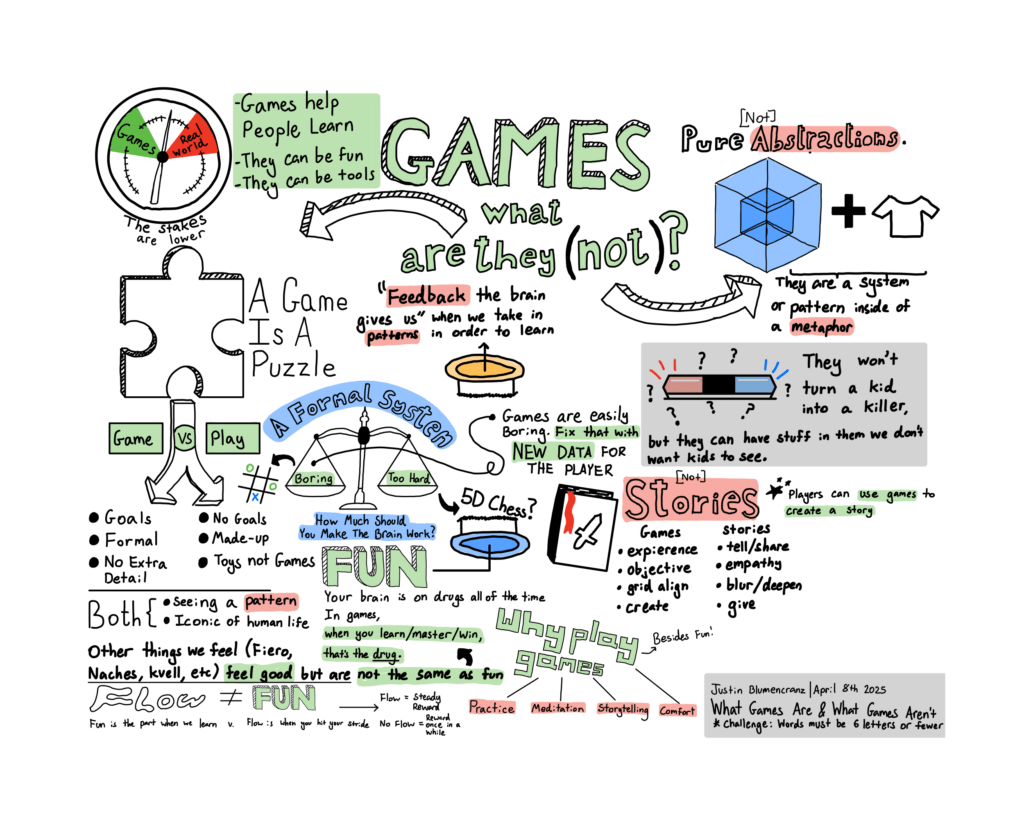 Games
Real
world
The stakes
are lower
-Games help
People Learn
-They can be fun
-They can be tools
GAMES
what
are they (not)?
[Not]
Pure Abstractions.
They are a system
or pattern inside of
a metaphor
A Game
Is A
Puzzle
"Feedback the brain
gives us" when we take in
patterns in order to learn
? ? ? ? ? ? ?
They won't
turn a kid
into a killer,
but they can have stuff in them we don't
want kids to see.
Game VS Play
A Formal System
Boring
Too Hard
Games are easily
Boring. Fix that with
NEW DATA FOR
THE PLAYER
5D Chess?
How Much Should
You Make The Brain Work?
• Goals
• Formal
• No Extra
Detail
• No Goals
• Made-up
• Toys not Games
Both {
• Seeing a pattern
• Iconic of human life
FUN
Your brain is on drugs all of the time
In games,
when you learn/master/win,
that's the drug.
Other things we feel (Fiero,
Naches, kvell, etc) feel good but are not the same as fun
FLOW ≠ FUN
Flow = steady
Reward
No Flow = Reward
once in a
while
Fun is the part when we learn v. Flow is when you hit your stride
[Not]
Stories
Players can use games to
create a story
Games
• expierence
• objective
• grid align
• create
stories
• tell/share
• empathy
• blur/deepen
• give
Why play
games
Besides Fun!
Practice
Meditation
Storytelling
Comfort
Justin Blumencranz | April 8th 2025
What Games Are & What Games Aren't
* Challenge: Words must be 6 letters or fewer